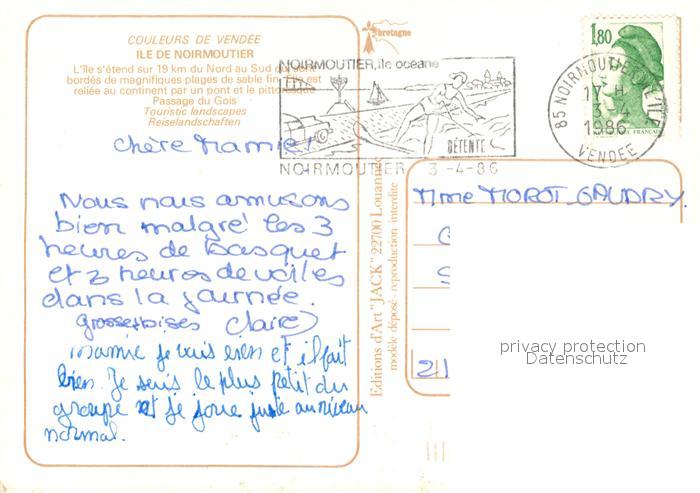 COULEURS DE VENDÉE
ILE DE NOIRMOUTIER
L'île s'étend sur 19 km du Nord au Sud qui sont
bordés de magnifiques plages de sable fin. Elle est
reliée au continent par un pont et le pittoresque
Passage du Gois
Touristic landscapes
Reiselandschaften
bretagne
NOIRMOUTIER, île océane
DÉTENTE
NOIRMOUTIER 3 -4-86
1,80
85 NOIRMOUTIER-EN-L'ILE
17 H
3 -4
1986
VENDÉE
FRANCAISE
chère Mamie
Nous nous amusons
bien malgré les 3
heures de basquet
et 3 heures de voiles
dans la journée.
grosses bises Claire
mamie je vais bien et il fait
bien. Je suis le plus petit du
groupe et je joue juste au niveau
normal.
Editions d'Art "JACK" 22700 Louannec
modèle déposé - reproduction interdite
Mme MOROT-GAUDRY.
21
privacy protection
Datenschutz